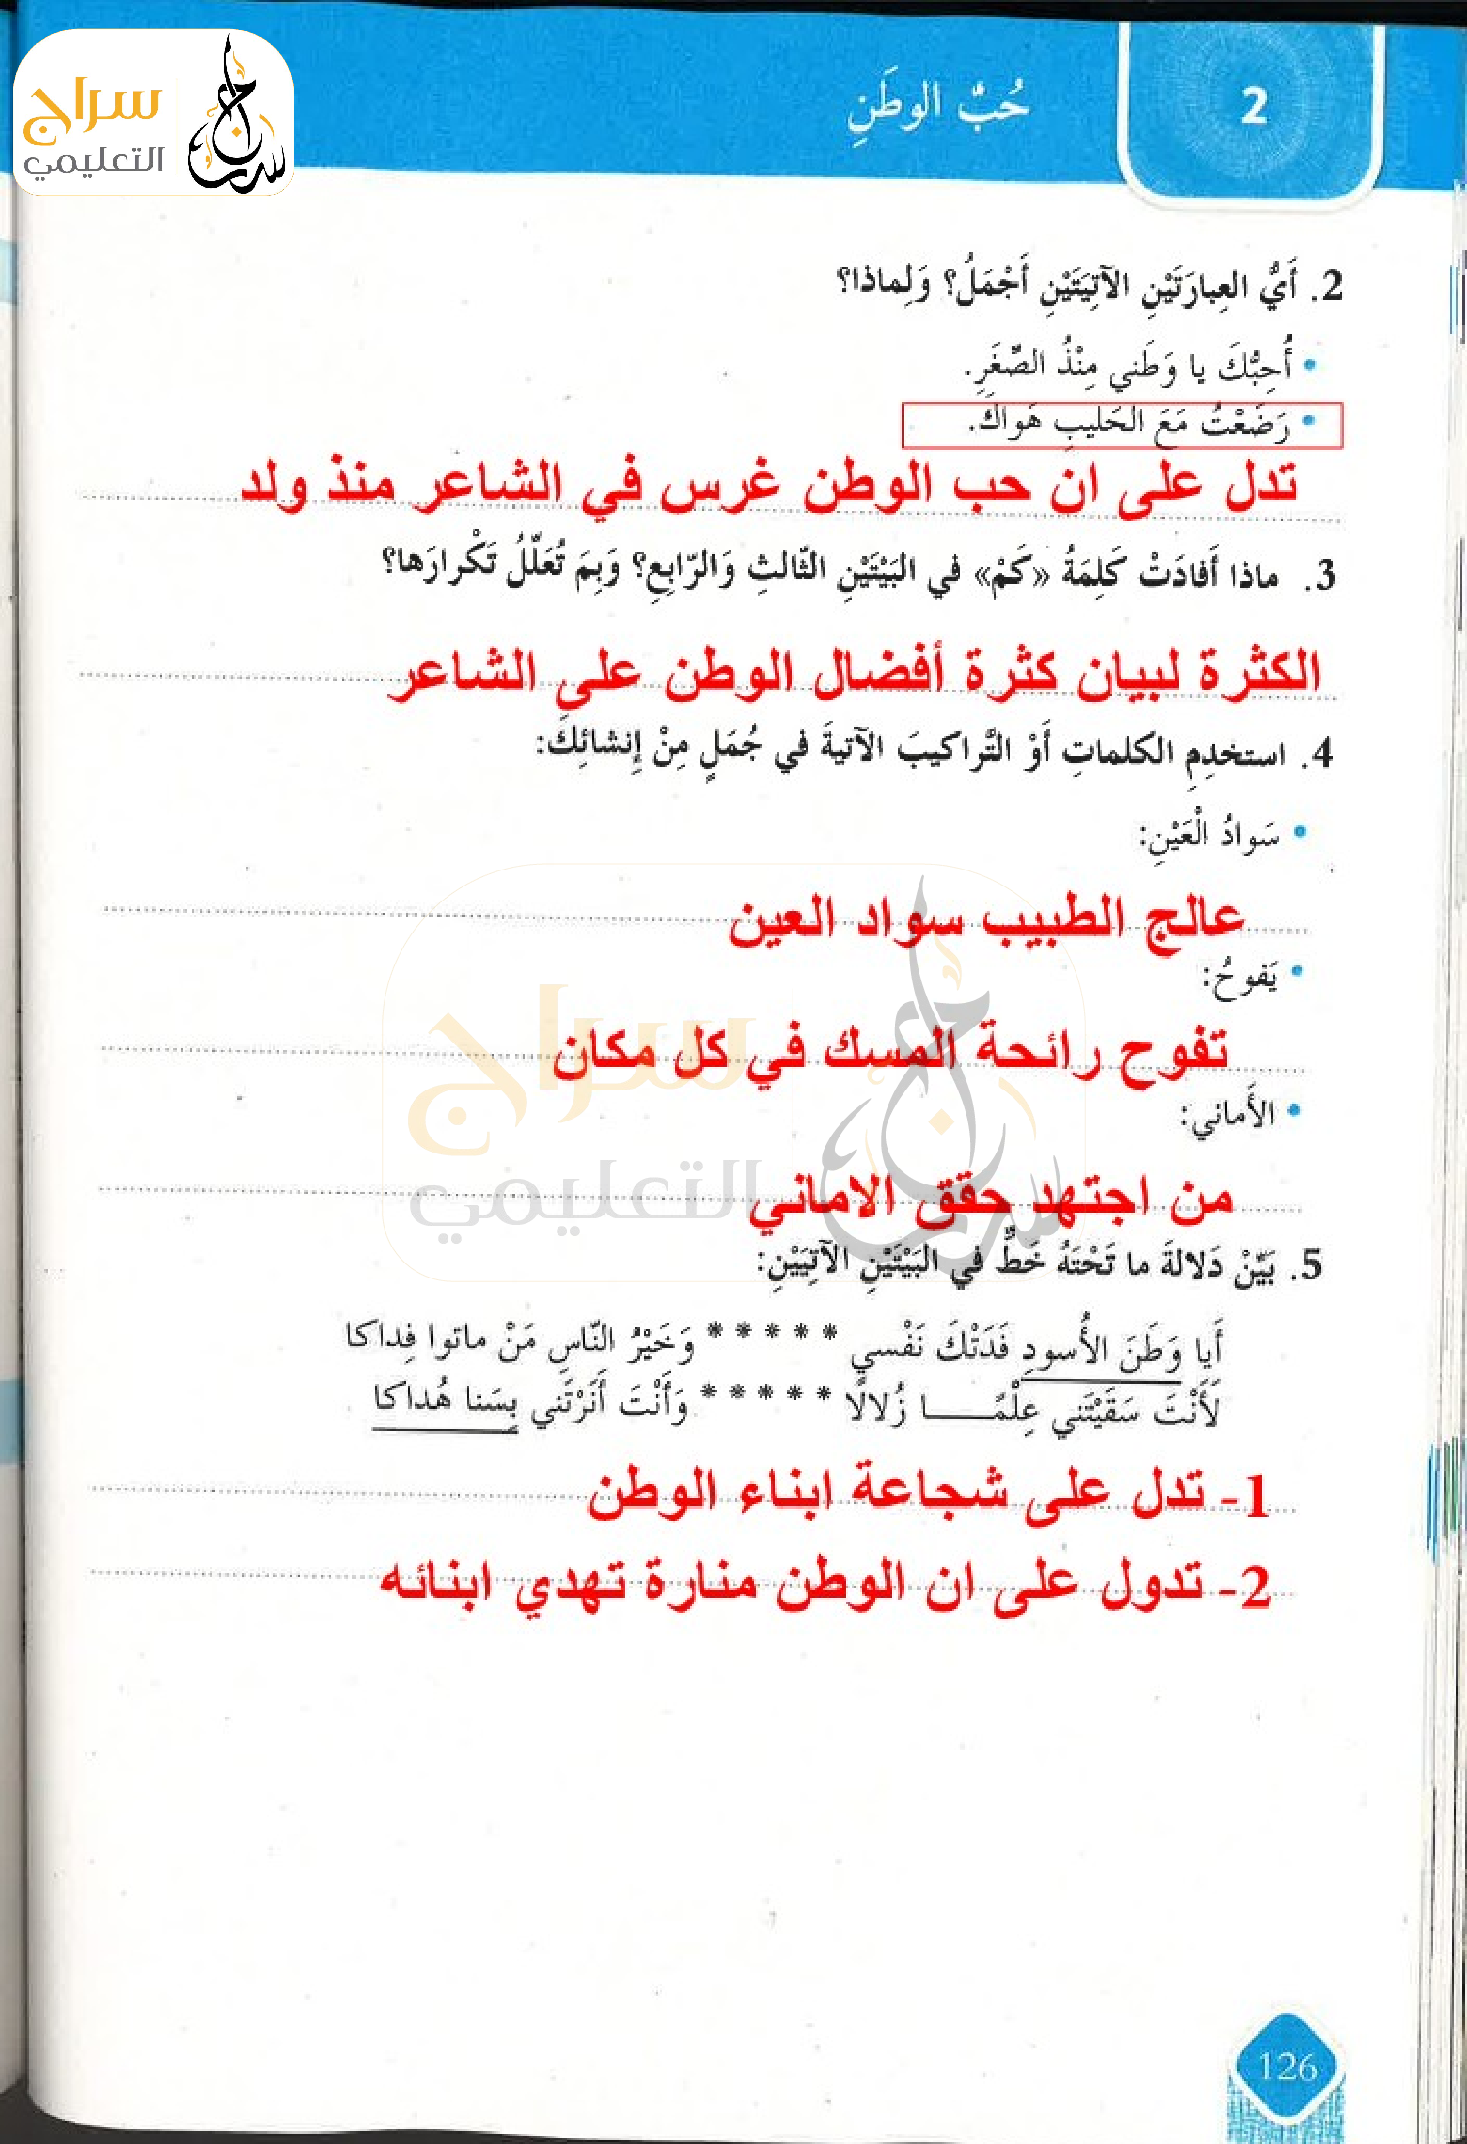 سراج
التعليمي
حُبُّ الوطَنِ
2
2. أَيُّ العِبارَتَيْنِ الآتِيَتَيْنِ أَجْمَلُ؟ وَلِماذا؟
• أُحِبُّكَ يا وَطَني مِنْذُ الصِّغَرِ.
• رَضَعْتُ مَعَ الحَليبِ هَواكَ.
تدل على ان حب الوطن غرس في الشاعر منذ ولد
3. ماذا أَفادَتْ كَلِمَةُ «كَمْ» في البَيْتَيْنِ الثّالثِ وَالرّابِعِ؟ وَبِمَ تُعَلِّلُ تَكْرارَها؟
الكثرة لبيان كثرة أفضال الوطن على الشاعر
4. استخدِمِ الكلماتِ أَوْ التَّراكيبَ الآتيةَ في جُمَلٍ مِنْ إِنشائِكَ:
• سَوادُ الْعَيْنِ:
عالج الطبيب سواد العين
• يَفوحُ:
تفوح رائحة المسك في كل مكان
• الأَماني:
من اجتهد حقق الاماني
5. بَيِّنْ دَلالةَ ما تَحْتَهُ خَطٌّ في البَيْتَيْنِ الآتِيَيْنِ:
أَيا وَطَنَ الأُسودِ فَدَتْكَ نَفْسي ***** وَخَيْرُ النّاسِ مَنْ ماتوا فِداكا
لَأَنْتَ سَقَيْتَني عِلْمًــــا زُلالًا ***** وَأَنْتَ أَنَرْتَني بِسَنا هُداكا
1- تدل على شجاعة ابناء الوطن
2- تدول على ان الوطن منارة تهدي ابنائه
سراج
التعليمي
126